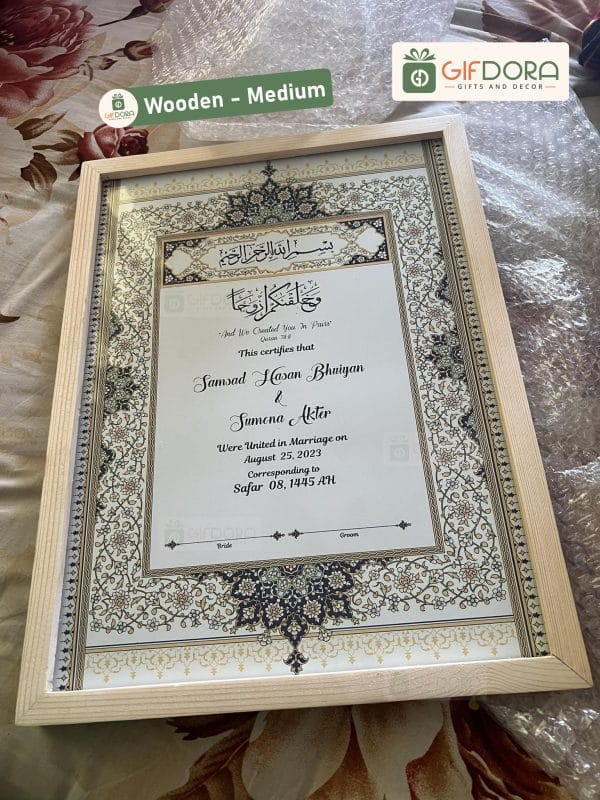 GIFDORA
GIFTS AND DECOR
GIFDORA
Wooden - Medium
بسم الله الرحمن الرحيم
وخلقنكم أزوجا
"And We Created You In Pairs"
Quran 78:8
This certifies that
Samsad Hasan Bhuiyan
&
Sumona Akter
Were United in Marriage on
August 25, 2023
Corresponding to
Safar 08, 1445 AH
Bride
Groom
GIFDORA